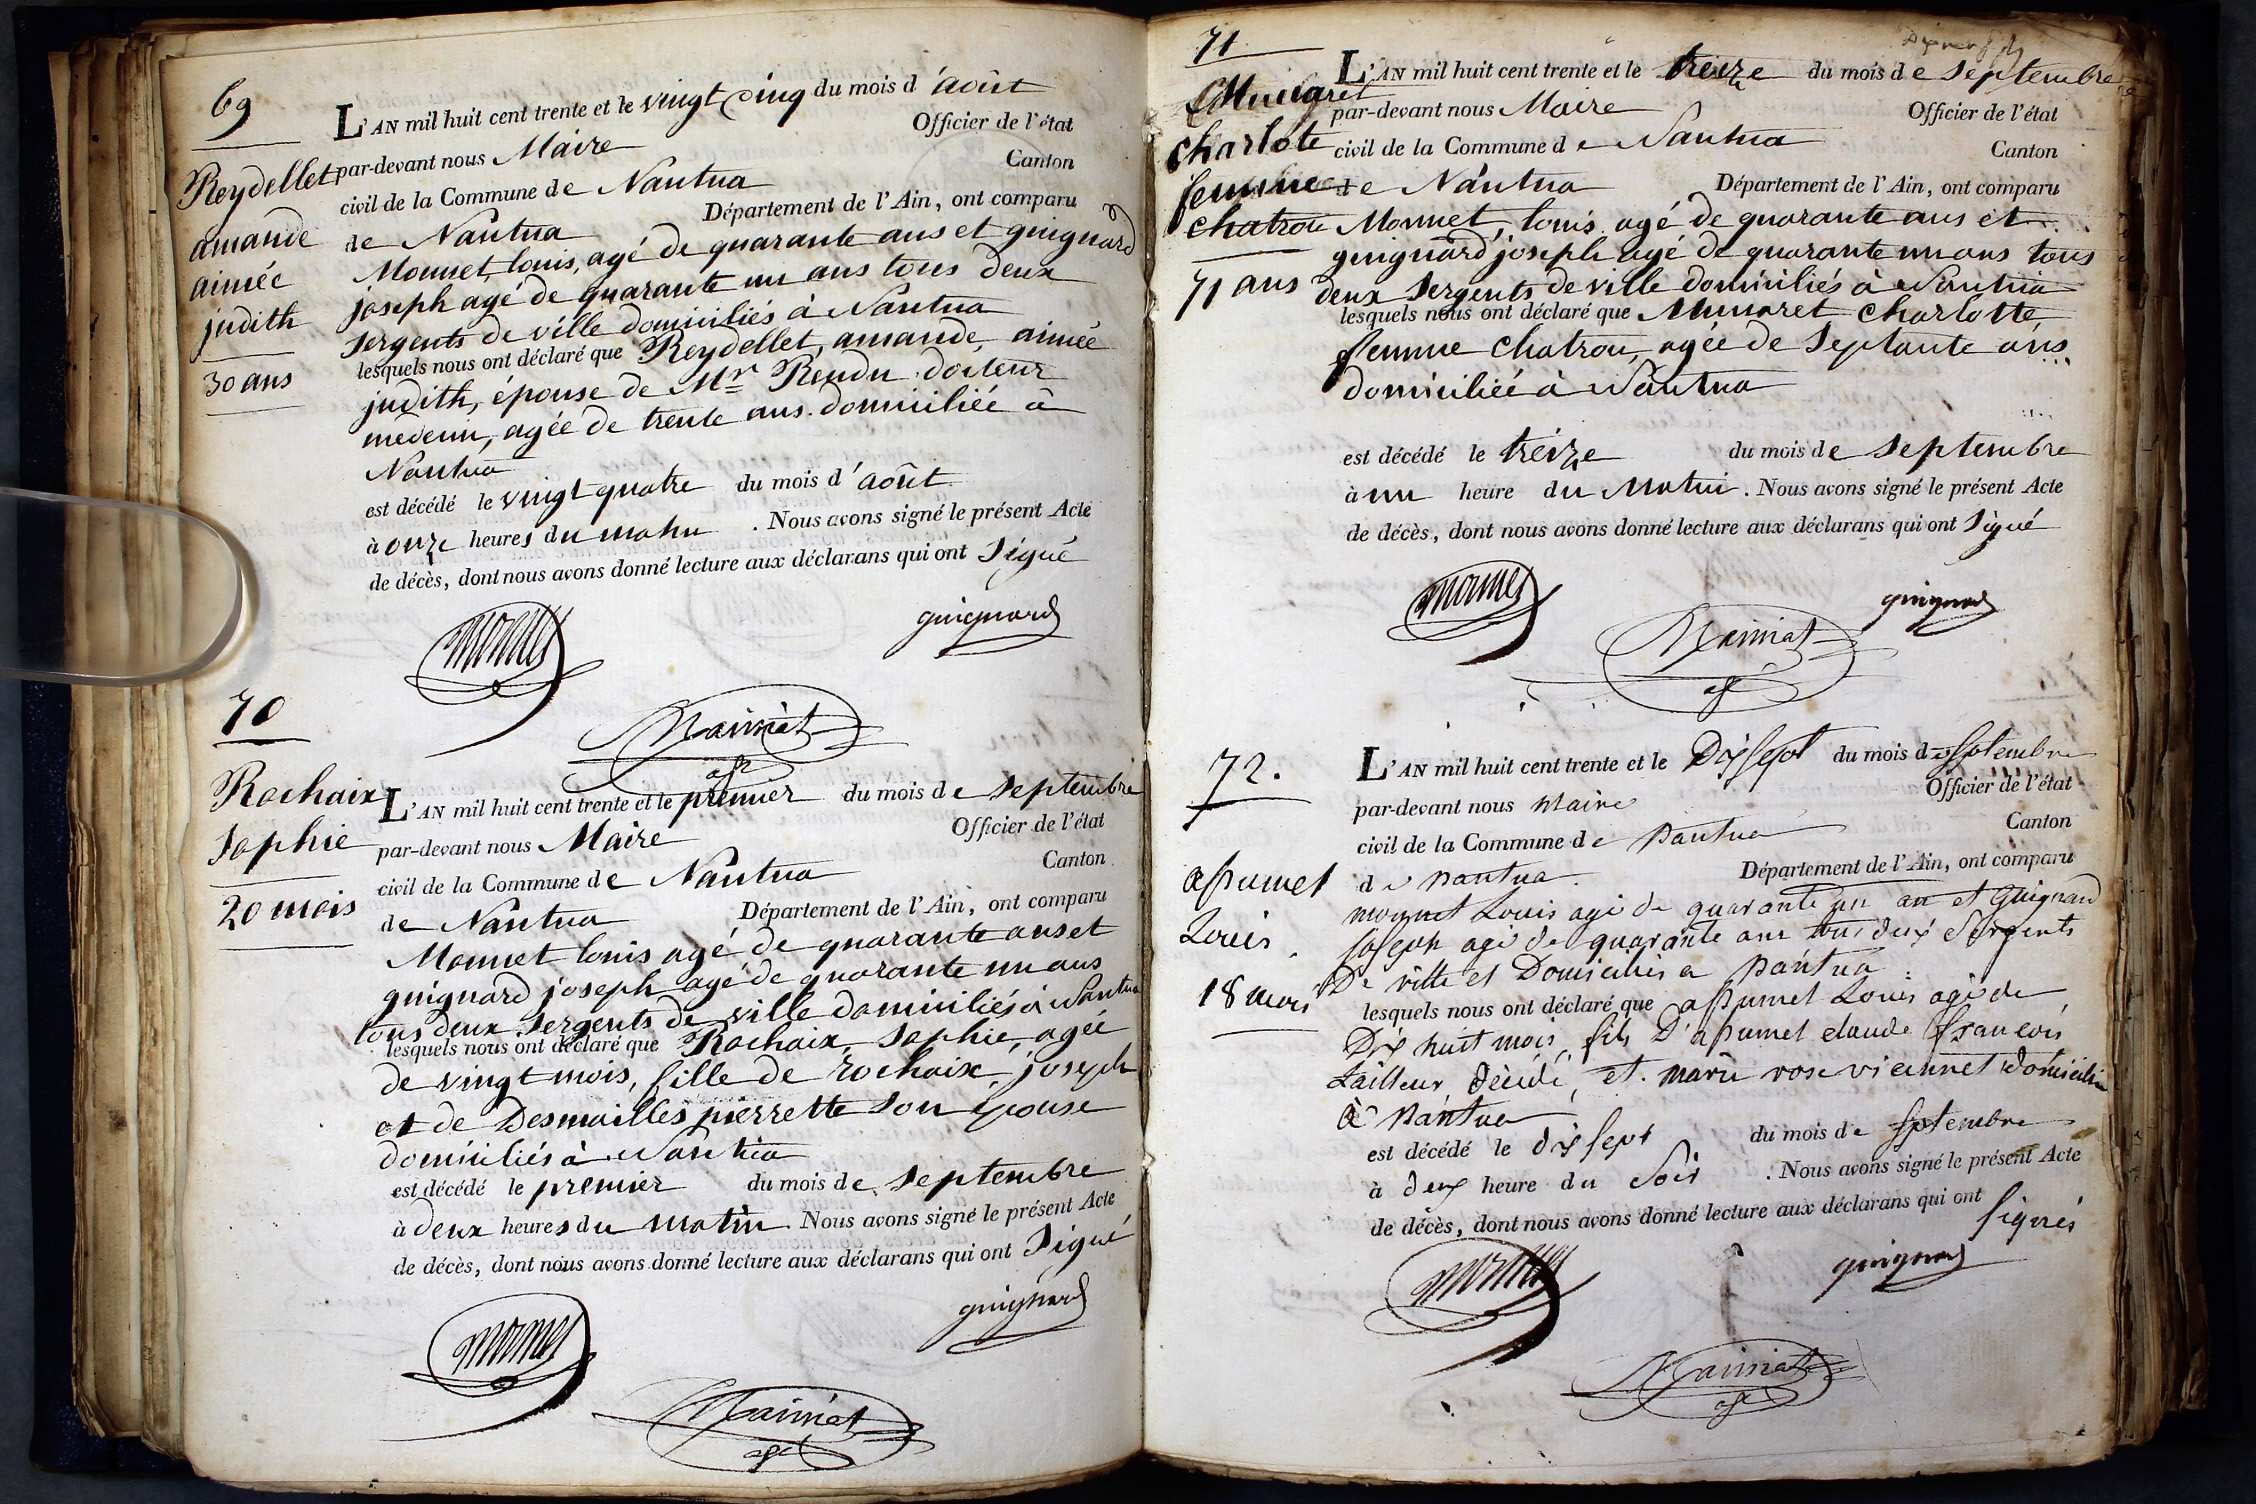 69
Reydellet
amande
aimée
judith
30 ans
L'AN mil huit cent trente et le vingt cinq du mois d'août
par-devant nous Maire Officier de l'état
civil de la Commune de Nantua Canton
de Nantua Département de l'Ain, ont comparu
Monnet, louis, agé de quarante ans et guignard
joseph agé de quarante un ans tous deux
sergents de ville domiciliés à Nantua
lesquels nous ont déclaré que Reydellet, amande, aimée
judith, épouse de Mr Rendu docteur
medecin, agée de trente ans domiciliée à
Nantua
est décédé le vingt quatre du mois d'août
à onze heures du matin . Nous avons signé le présent Acte
de décès, dont nous avons donné lecture aux déclarans qui ont signé
monnet
guignard
70
Rochaix
Sophie
20 mois
L'AN mil huit cent trente et le premier du mois de septembre
par-devant nous Maire Officier de l'état
civil de la Commune de Nantua Canton
de Nantua Département de l'Ain, ont comparu
Monnet louis agé de quarante ans et
guignard joseph agé de quarante un ans
tous deux sergents de ville domiciliés à Nantua
lesquels nous ont déclaré que Rochaix, Sophie, agée
de vingt mois, fille de rochaix, joseph
et de Desmailles pierrette son épouse
domiciliés à Nantua
est décédé le premier du mois de septembre
à deux heures du matin . Nous avons signé le présent Acte
de décès, dont nous avons donné lecture aux déclarans qui ont signé
monnet
guignard
71
Munaret
charlote
femme
chatrou
71 ans
L'AN mil huit cent trente et le treize du mois de septembre
par-devant nous Maire Officier de l'état
civil de la Commune de Nantua Canton
de Nantua Département de l'Ain, ont comparu
Monnet, louis agé de quarante ans et
guignard joseph agé de quarante un ans tous
deux sergents de ville domiciliés à Nantua
lesquels nous ont déclaré que Munaret charlotte
femme chatrou, agée de septante ans
domiciliée à Nantua
est décédé le treize du mois de septembre
à un heure du matin . Nous avons signé le présent Acte
de décès, dont nous avons donné lecture aux déclarans qui ont signé
monnet
guignard
72.
Louis
18 mois
L'AN mil huit cent trente et le Dix sept du mois de septembre
par-devant nous Maire Officier de l'état
civil de la Commune de Nantua Canton
de Nantua Département de l'Ain, ont comparu
monnet Louis agé de quarante un an et Guignard
joseph agé de quarante ans tous deux Sergents
De ville et Domiciliés a Nantua
lesquels nous ont déclaré que Louis agé de
Dix huit mois, fils claude françois
tailleur décédé, et marie rose viennet domiciliée
à Nantua
est décédé le dix sept du mois de septembre
à deux heure du Soir . Nous avons signé le présent Acte
de décès, dont nous avons donné lecture aux déclarans qui ont signés
monnet
guignard